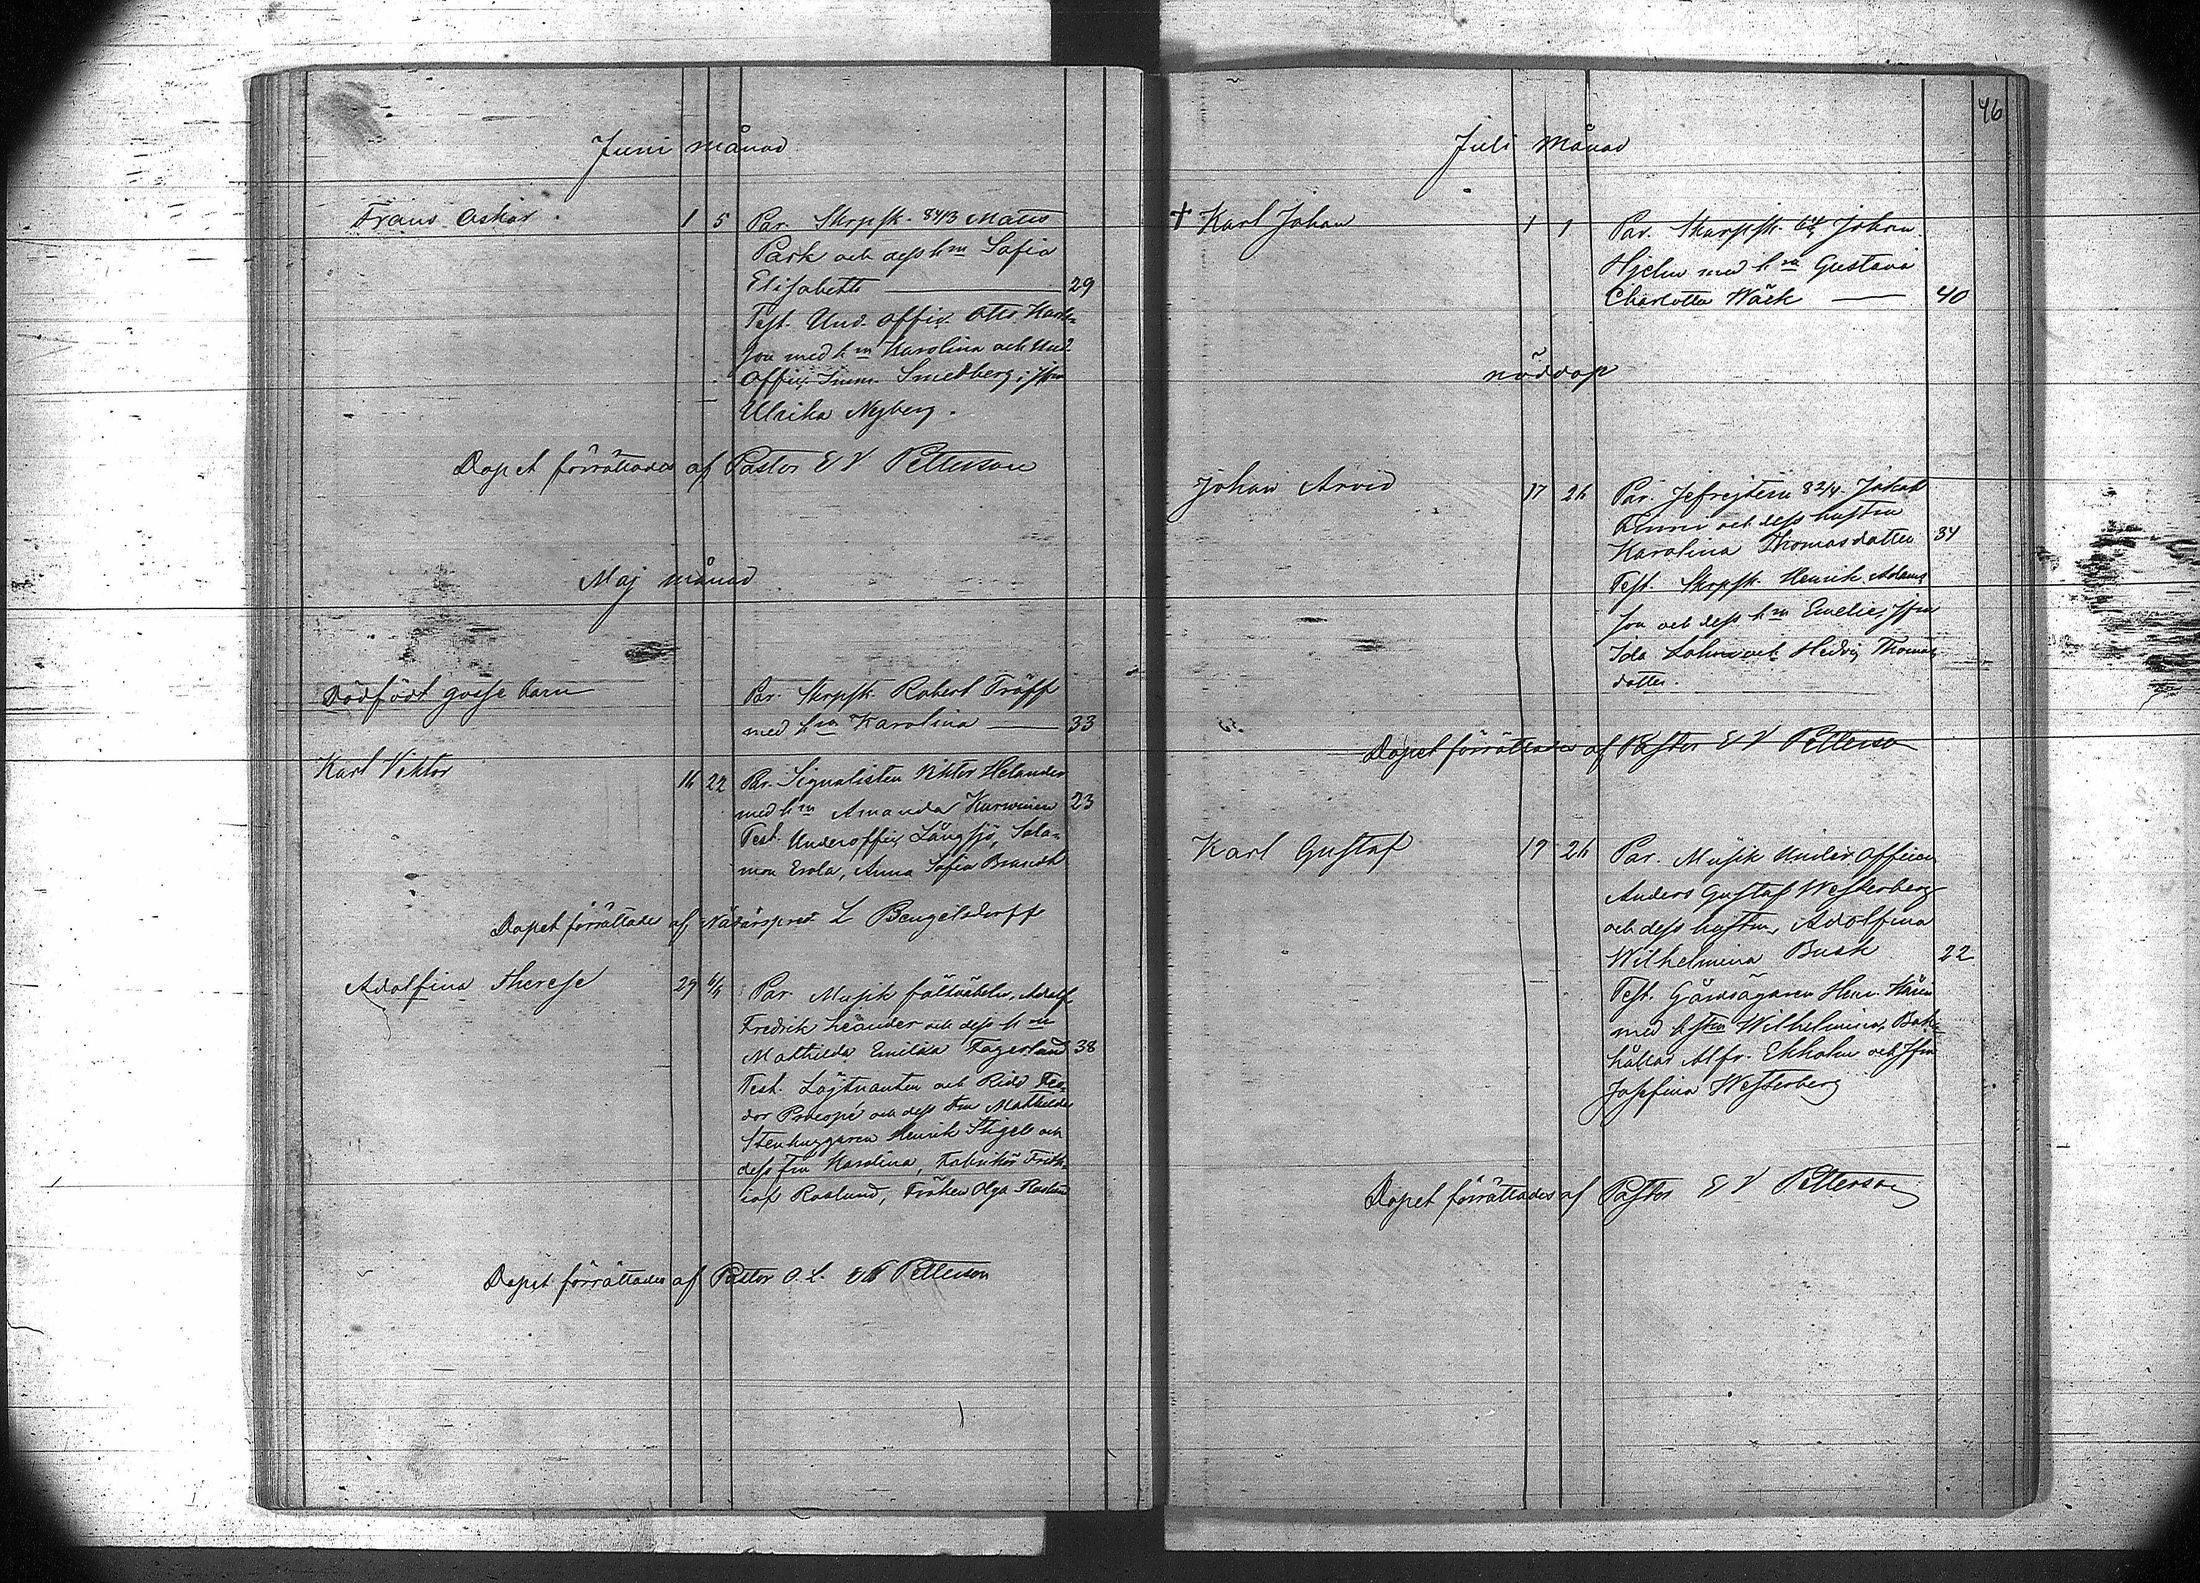 Juni månad
Frans Oskar. 1 5 Par. Skrpsk. 84/3 Matts
Park och dess hru Sofia
Elisabeth — 29
Test. Und. offic. Otto Karls-
son med hru Karolina och Und
Offic. Smedberg, jfru
Ulrika Nyberg.
Dopet förrättades af Pastor E V Petterson
Maj månad
Dödfödt gosse barn Par. Skrpsk Robert Träff
med hru Karolina — 33
Karl Viktor 16 22 Par. Signalisten Viktor Helander
med hru Amanda 23
Test. Underoffic. Långsjö, Salo-
mon Erola, Anna Sofia Brandt
Dopet förrättades af Nådårspred. L Bengelsdorff
Adolfina Therese 29 6/7 Par. Musik fältväbeln Adolf
Fredrik Leander och dess hru
Mathilda Emilia Fagerlund 38
Test. Löjtnanten och Ridd Feo-
dor Procopé och dess Fru Mathilda
Stenhuggaren Henrik Stigell och
dess fru Karolina, Fabrikör Frith-
iof Roslund, Fröken Olga Roslund
Dopet förrättades af Pastor O. L. E V Petterson
46
Juli Månad
† Karl Johan 1 1 Par. Skarpsk. Johan
Hjelm med hru Gustava
Charlotta Wäck — 40
nöddop
Johan Arvid 17 26 Par. Jefrejtern 82/4 Jakob
och dess hustru
Karolina Thomasdotter 34
Test. Skrpsk. Henrik Adams-
son och dess hru Emelie, jfru
Ida och Hedvig Thomas
dotter.
Dopet förrättades af Pastor E V Petterson
Karl Gustaf 19 26 Par. Musik Under Officer
Anders Gustaf Westerberg
och dess hustru, Adolfina
Wilhelmina Busk 22
Test. Gårdsägaren Henr.
med hstru Wilhelmina, Bok-
hållar Alfr. Ekholm och jfru
Josefina Westerberg
Dopet förrättades af Pastor E V Petterson